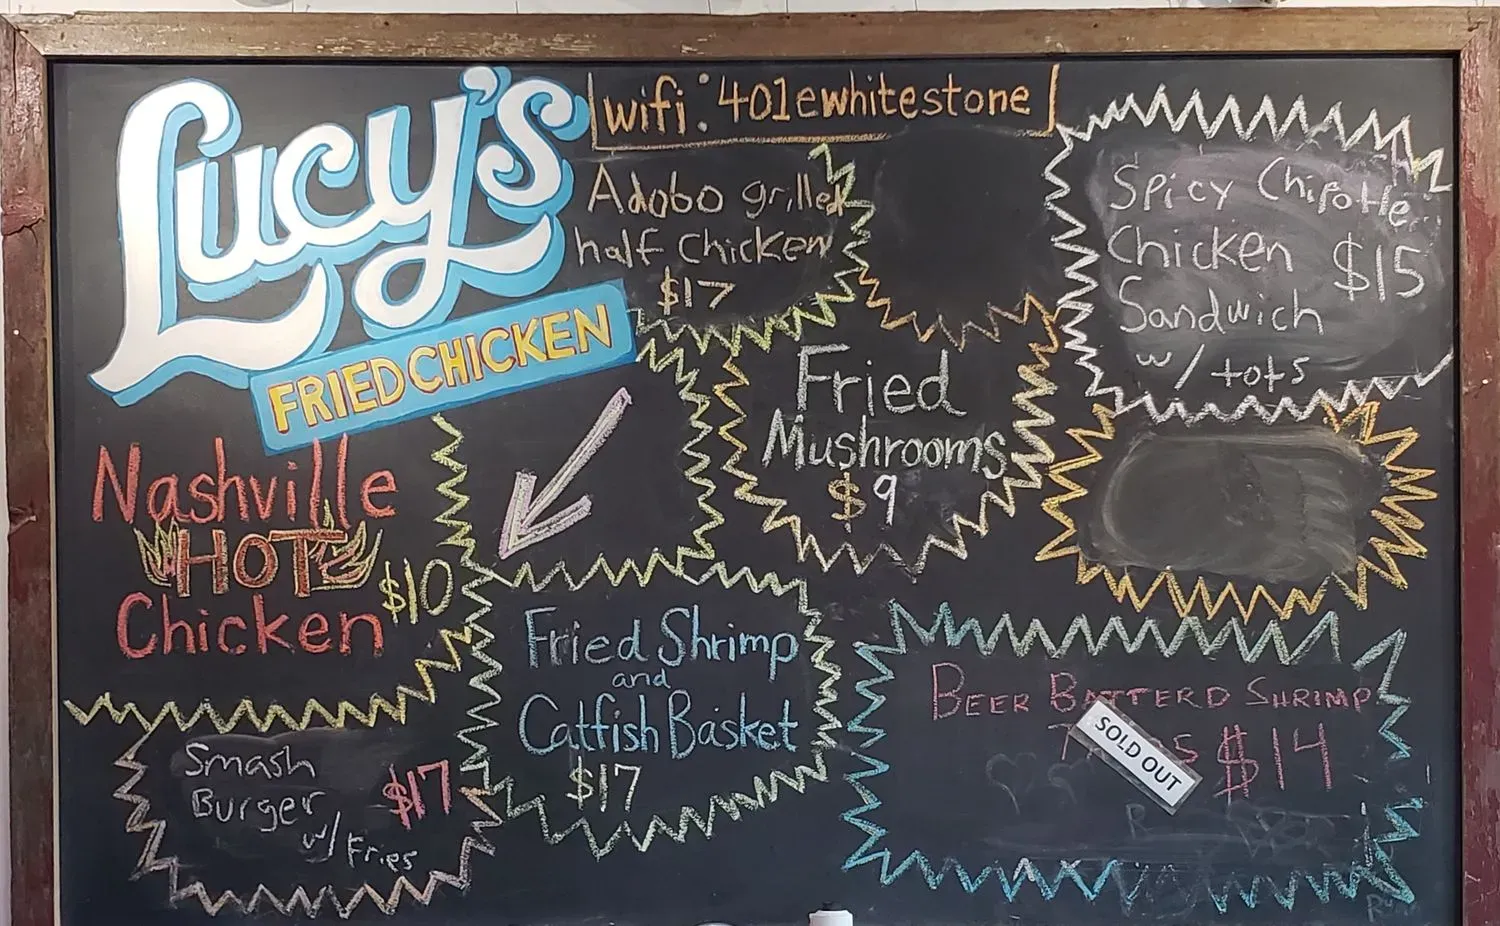 Lucy's
FRIED CHICKEN
wifi: 401ewhitestone
Adobo grilled
half chicken
$17
Spicy Chipotle
Chicken $15
Sandwich
w/ tots
Fried
Mushrooms
$9
Nashville
HOT
Chicken $10
Fried Shrimp
and
Catfish Basket
$17
Smash
Burger $17
w/ Fries
BEER BATTERD SHRIMP
$14
SOLD OUT